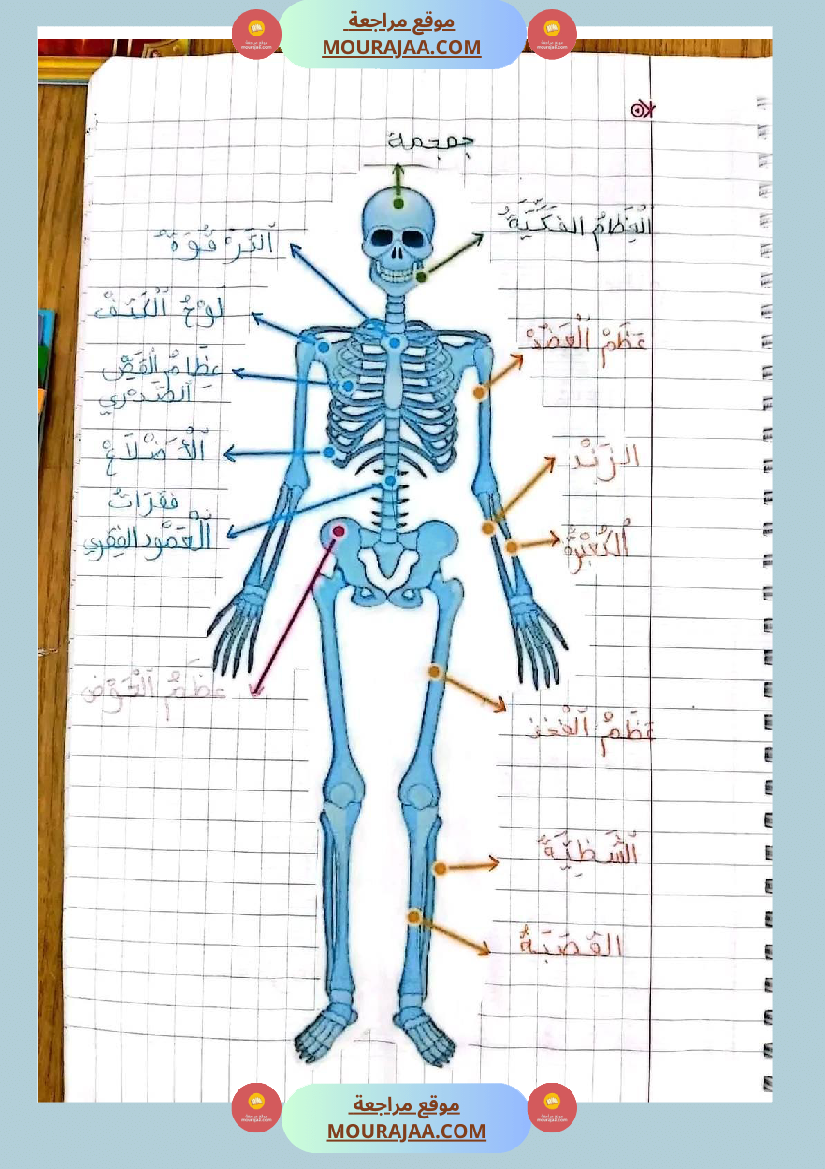 موقع مراجعة
MOURAJAA.COM
جمجمة
العِظَامُ الفَكِّيَّةُ
اَلتَّرْقُوَةُ
لَوْحُ اَلْكَتِفْ
عَظْمُ اَلْعَضُدْ
عِظَامُ القَصِّ
الصَّدْرِي
اَلْأَضْلَاعْ
الزَنْدْ
فقرَاتُ
اَلْعَمُّودالفِقَرِي
اُلكُعْبُرَةُ
عَظْمُ اَلْحَوْض
عَظْمُ اَلْفَخذ
اَلشَّظِيَّةُ
القَصَبَةُ
موقع مراجعة
MOURAJAA.COM